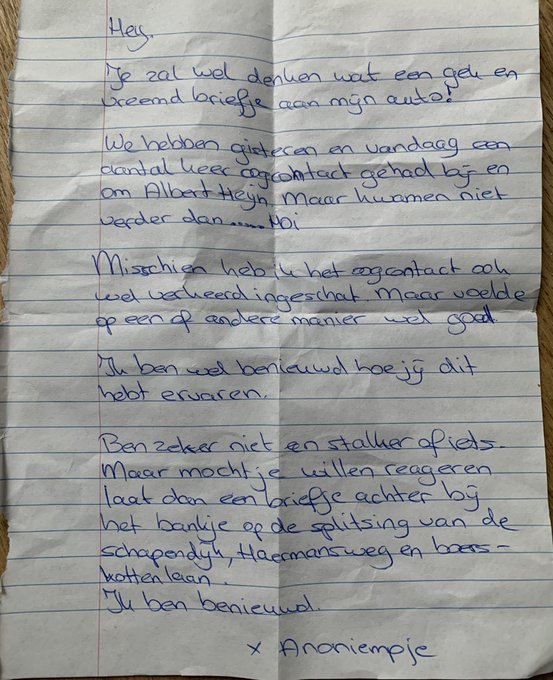 Hey.
Je zal wel denken wat een gek en
vreemd briefje aan mijn auto!
We hebben gisteren en vandaag een
aantal keer oogcontact gehad bij en
om Albert Heijn. Maar kwamen niet
verder dan ...... Hoi
Misschien heb ik het oogcontact ook
wel verkeerd ingeschat. Maar voelde
op een of andere manier wel goed
Ik ben wel benieuwd hoe jij dit
hebt ervaren.
Ben zeker niet en stalker of iets.
Maar mocht je willen reageren
laat dan een briefje achter bij
het bankje op de splitsing van de
schapendijk, Haermansweg en boers-
kottenlaan.
Ik ben benieuwd.
x Anoniempje